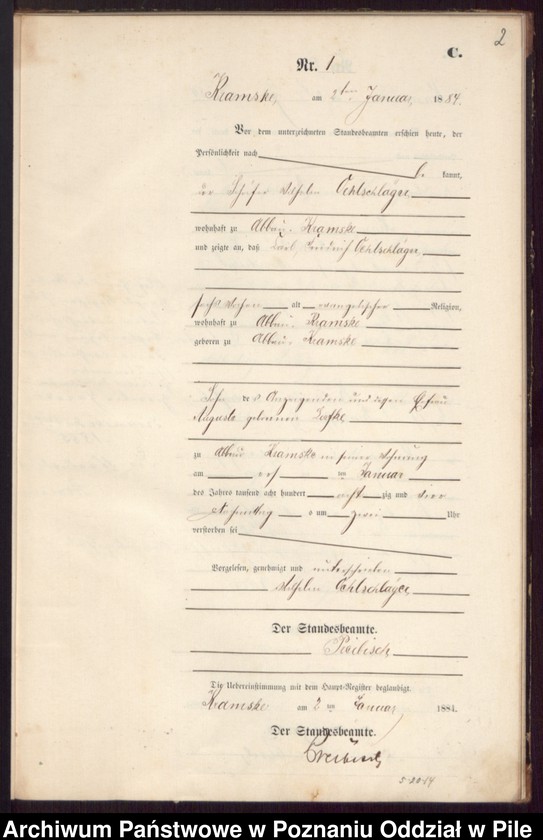 2
C.
Nr. 1
Kramske, am 2ten Januar 1884.
Vor dem unterzeichneten Standesbeamten erschien heute, der
Persönlichkeit nach be kannt,
der Schäfer Wilhelm Oehlschläger
wohnhaft zu Abbau Kramske
und zeigte an, daß Carl, Friedrich Oehlschläger,
sechs Wochen alt evangelischer Religion,
wohnhaft zu Abbau Kramske
geboren zu Abbau Kramske
Sohn des Anzeigenden und dessen Ehefrau
Auguste geborenen
zu Abbau Kramske in seiner Wohnung
am ersten Januar
des Jahres tausend acht hundert acht zig und vier
Nachmittag s um zwei Uhr
verstorben sei
Vorgelesen, genehmigt und unterschrieben
Wilhelm Oehlschläger
Der Standesbeamte.
Die Uebereinstimmung mit dem Haupt-Register beglaubigt.
Kramske am 2 ten Januar 1884.
Der Standesbeamte.
Archiwum Państwowe w Poznaniu Oddział w Pile